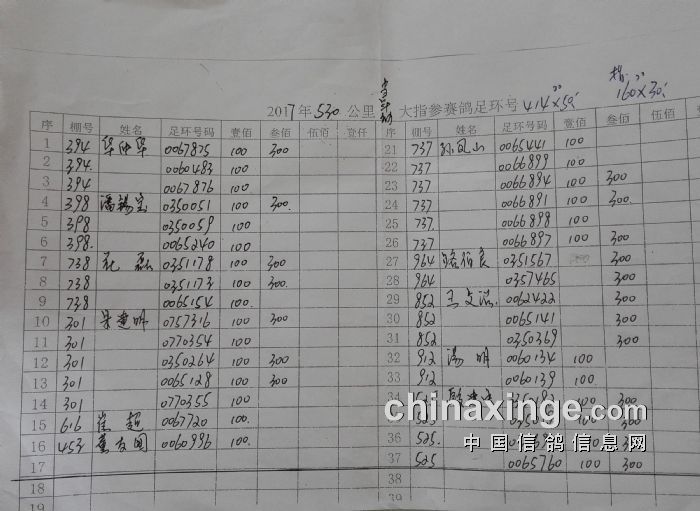 指
160×30
2017年 530 公里 大指参赛鸽足环号 414×50
序 棚号 姓名 足环号码 壹佰 叁佰 伍佰 壹仟
1 394 0067875 100 300
2 394. 0060483 100
3 394 0067876 100
4 398 潘锡宝 0350051 100 300.
5 398 0350059 100
6 398. 0065240 100
7 738 孔磊 0351178 100 300
8 738 0351173 100 300.
9 738 0065154 100.
10 301 梁建明 0757316 100 300
11 0770354 100
12 301 0350264 100 300
13 301 0065128 100 300
14 301 0770355 100
15 616 崔超 0067720 100.
16 453 董友国 0060996 100.
17
18
19
序 棚号 姓名 足环号码 壹佰 叁佰 伍佰
21 737 孙凤山 0065441 100
22 737 0066899 100
23 737 0066894 100 300
24 737 0066891 100 300.
25 737. 0066898 100
26 737 0066897 100 300
27 964 骆伯良 0351567 300
28 964 0357465 300
29 852 王文 0062422 300
30 852 0065141 300
31 852 0350369 300
32 912 汤明 0060134 100
33 912 0060139 100
34
35
36 525.
37 525 0065760 100 300
38
39
chinaxinge.com
中国信鸽信息网